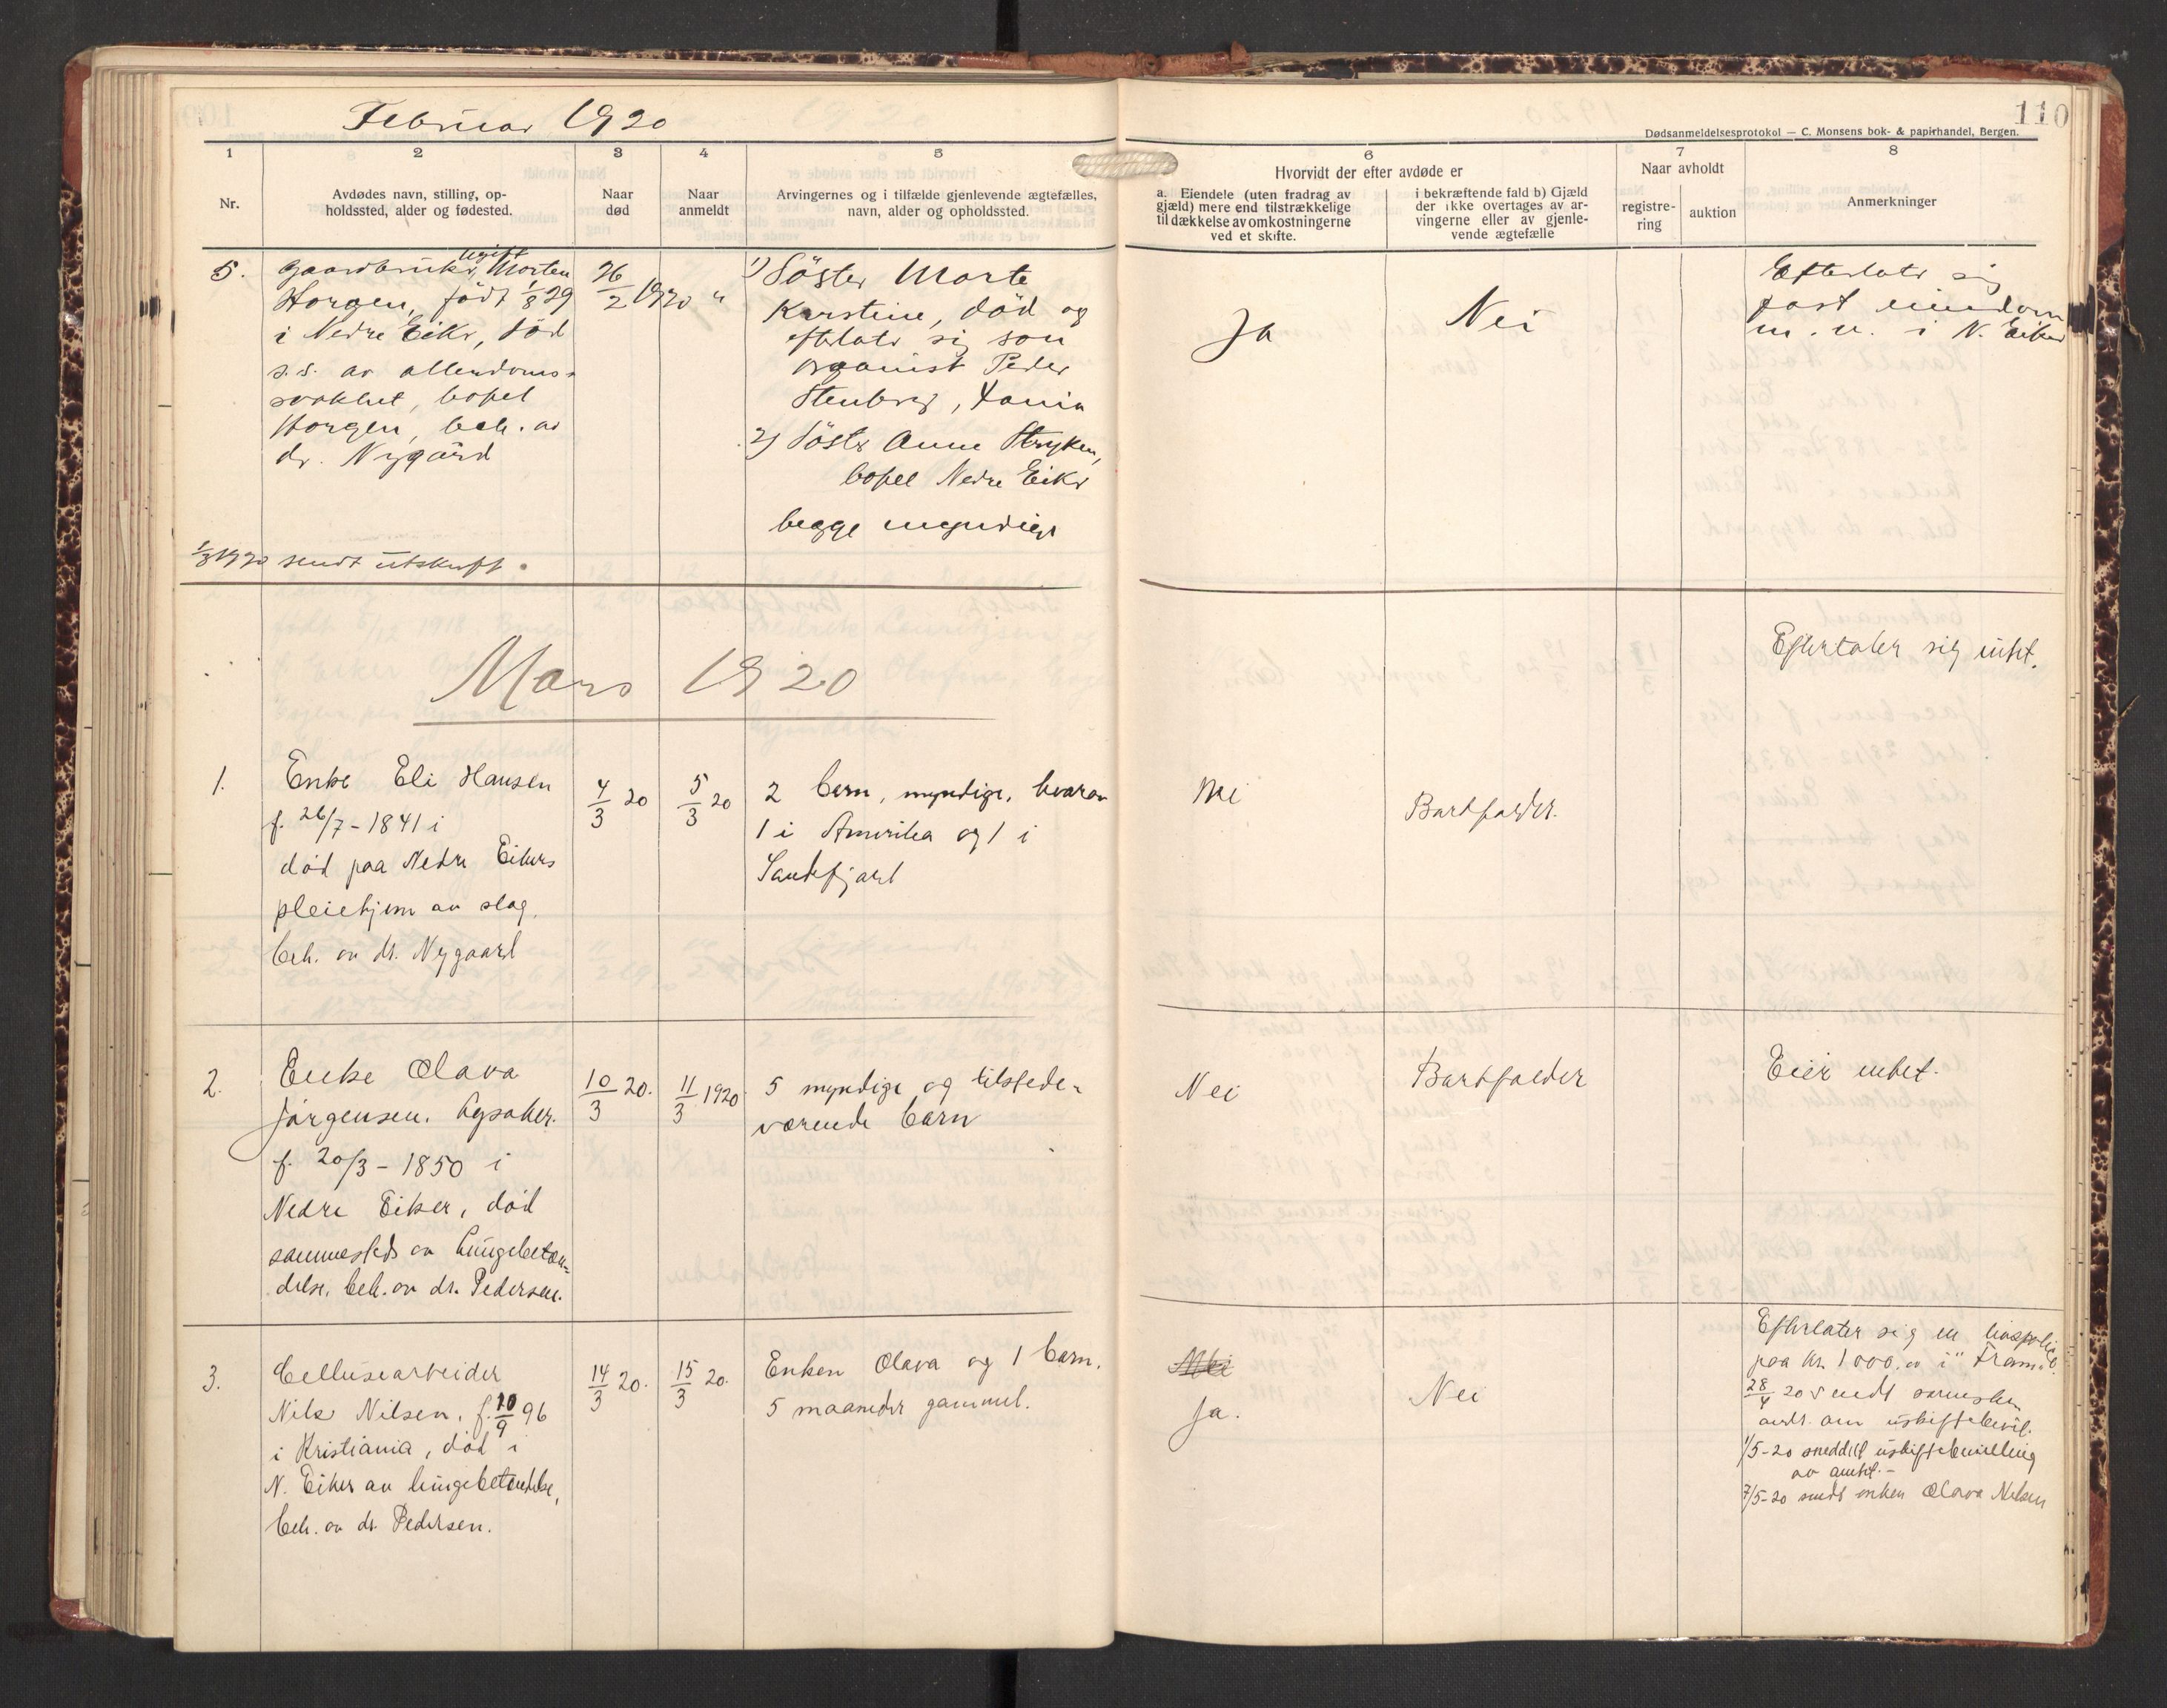 Februar 1920
110
Dødsanmeldelsesprotokol — C. Monsens bok- & papirhandel, Bergen.
1
2
3
4
5
6
7
8
Nr.
Avdødes navn, stilling, op-
holdssted, alder og fødested.
Naar
død
Naar
anmeldt
Arvingernes og i tilfælde gjenlevende ægtefælles,
navn, alder og opholdssted.
Hvorvidt der efter avdøde er
a. Eiendele (uten fradrag av
gjæld) mere end tilstrækkelige
til dækkelse av omkostningerne
ved et skifte.
i bekræftende fald b) Gjæld
der ikke overtages av ar-
vingerne eller av gjenle-
vende ægtefælle
Naar avholdt
registre-
ring
auktion
Anmerkninger
5.
ugift
Gaardbruker, Morten
Horgen, født 1/8 29
i Nedre Eiker, død
s.s. av alderdoms-
svakhet, bopel
Horgen, beh. av
dr. Nygård
26/2 1920
"
1) Søster Marte
Karstine, død og
efterlater sig søn
organist Peder
Stenberg,
2) Søster Anne Stryken,
bopel Nedre Eiker
begge myndige
Ja
Nei
Efterlater sig
fast eiendom
m. v. i N. Eiker
1/3 1920 sendt utskrift.
Mars 1920
Efterlater sig intet.
1.
Enke Eli Hansen
f. 26/7 - 1841 i
død paa Nedre Eikers
pleiehjem av slag.
beh. av dr. Nygaard
4/3 20
5/3 20
2 barn, myndige, hvorav
1 i Amerika og 1 i
Sandefjord
Nei
Bortfalder.
2.
Enke Olava
Jørgensen. Lysaker.
f. 20/3 - 1850 i
Nedre Eiker, død
sammesteds av lungebetæn-
delse, beh. av dr. Pedersen.
10/3 20.
11/3 1920
5 myndige og tilstede-
værende barn
Nei
Bortfalder
Eier intet.
3.
Cellusearbeider
Nils Nilsen, f. 10/9 96
i Kristiania, død i
N. Eiker av lungebetændelse,
beh. av dr. Pedersen.
14/3 20.
15/3 20.
Enken Olava og 1 barn.
5 maaneder gammel.
Nei
Ja.
Nei
Efterlater sig en livspolice
paa kr. 1000.00 i "Fram".
28/4 20 sendt
andr. om uskiftebevil.
1/5-20 meddelt uskiftebevilling
av amtet.-
7/5-20 sendt enken Olava Nilsen